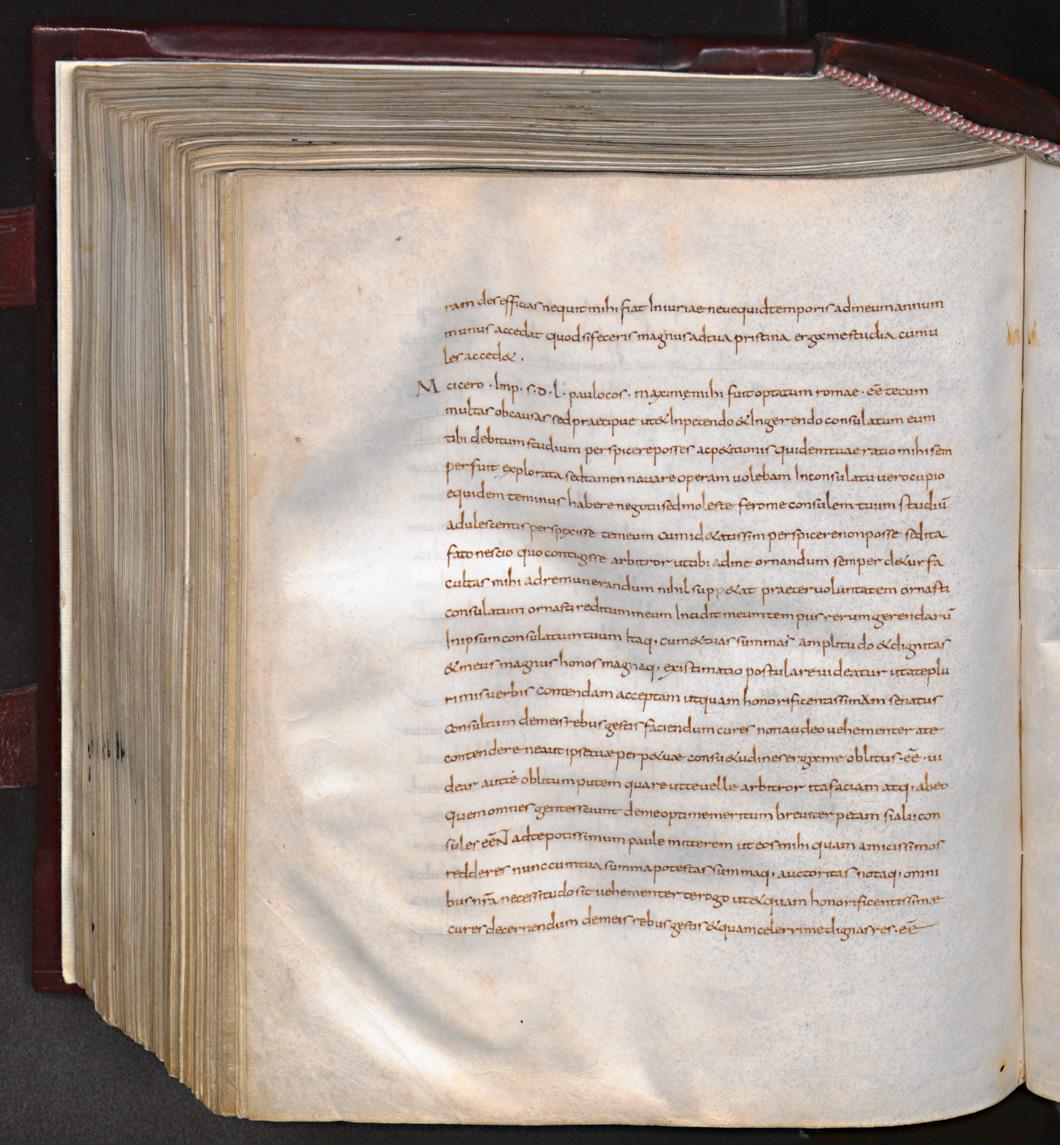 ram des efficias nequit mihi fiat Iniuriae neve quid temporis ad meum annum
munus accedat quod si feceris magnus ad tua pristina erga me studia cumu
les acced&.
M cicero · Imp · s · d · l · paulo cos · maxime mihi fuit optatum romae · eē tecum
multas ob causas sed praecipue ut & In petendo & In gerendo consulatum eum
tibi debitum studium perspicere posses ac p&itionis quidem tuae ratio mihi sem
per fuit explorata sed tamen navare operam volebam In consulatu vero cupio
equidem te minus habere negotii sed moleste fero me consulem tuum studiū
adulescentis perspexisse te meum cum id &atis sim perspicere non posse sed ita
fato nescio quo contigisse arbitror ut tibi ad me ornandum semper d&ur fa
cultas mihi ad remunerandum nihil supp&at praeter voluntatem ornasti
consulatum ornasti reditum meum Incidit meum tempus rerum gerendarū
In ipsum consulatum tuum Itaq; cum & tuas summas amplitudo & dignitas
& meus magnus honos magnaq; existimatio postulare videatur ut a te plu
rimis verbis contendam ac c&am ut quam honorificentissimam senatus
consultum de meis rebus gestis faciendum cures non audeo vehementer a te
contendere ne aut ipse tuae perp&uae consu&udines erga me oblitus · eē · vi
dear aut te oblitum putem quare ut te velle arbitror ita faciam atq; ab eo
quem omnes gentes sciunt de me optime meritum breviter petam si alii con
sules eēnt ad te potissimum paule mitterem ut eos mihi quam amicissimos
redderes nunc cum tua summa potestas summaq; auctoritas notaq; omni
bus nr̄a necessitudo sit vehementer te rogo ut & quam honorificentissime
cures decernendum de meis rebus gestis & quam celerrime dignas res · eē